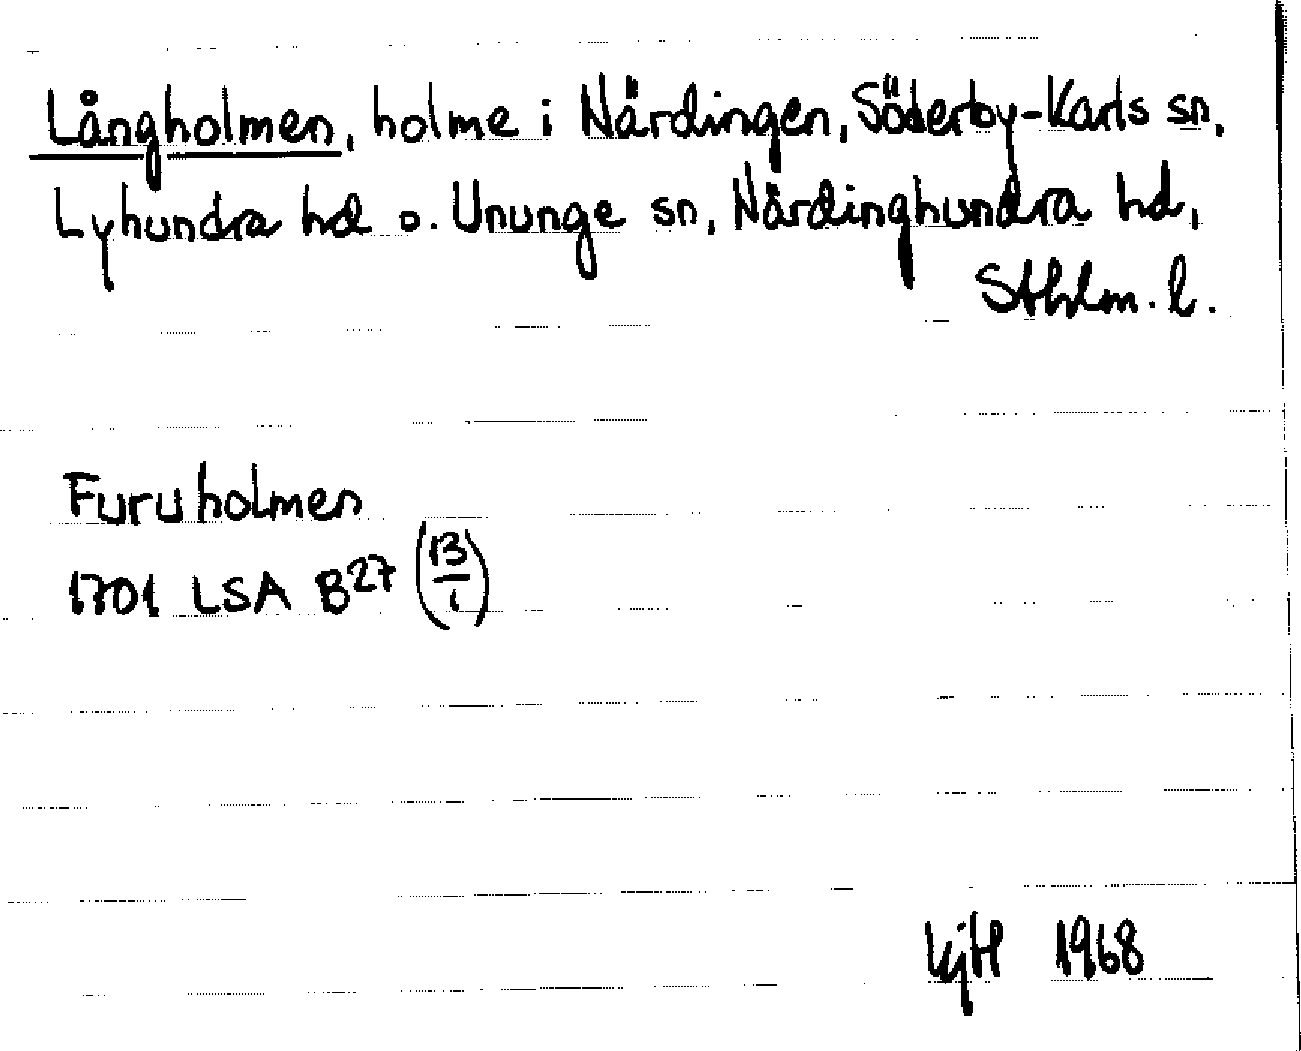 Långholmen, holme i Närdingen, Söderby-Karls sn,
Lyhundra hd o. Ununge sn, Närdinghundra hd,
Sthlm. l.
Furuholmen
1701 LSA B27 (13/1)
KjH 1968